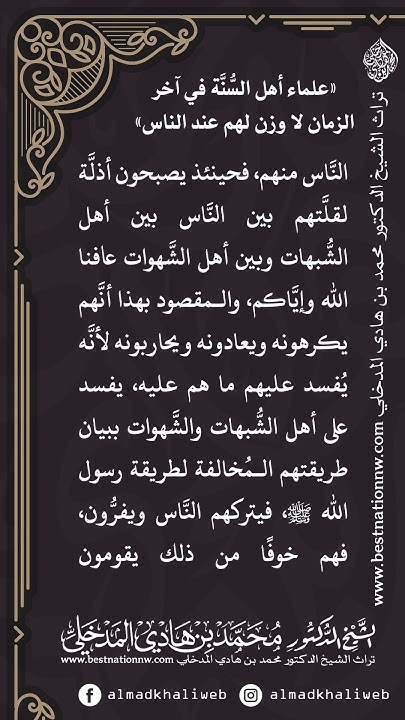 «علماء أهل السُّنَّة في آخر
الزمان لا وزن لهم عند الناس»
النَّاس منهم، فحينئذ يصبحون أذلَّة
لقلَّتهم بين النَّاس بين أهل
الشُّبهات وبين أهل الشَّهوات عافنا
الله وإيَّاكم، والـمقصود بهذا أنَّهم
يكرهونه ويعادونه ويحاربونه لأنَّه
يُفسد عليهم ما هم عليه، يفسد
على أهل الشُّبهات والشَّهوات ببيان
طريقتهم الـمُخالفة لطريقة رسول
الله ﷺ، فيتركهم النَّاس ويفرُّون،
فهم خوفًا من ذلك يقومون
تراث الشيخ الدكتور محمد بن هادي المدخلي www.bestnationnw.com
الشيخ الدكتور محمد بن هادي المدخلي
تراث الشيخ الدكتور محمد بن هادي المدخلي www.bestnationnw.com
almadkhaliweb almadkhaliweb